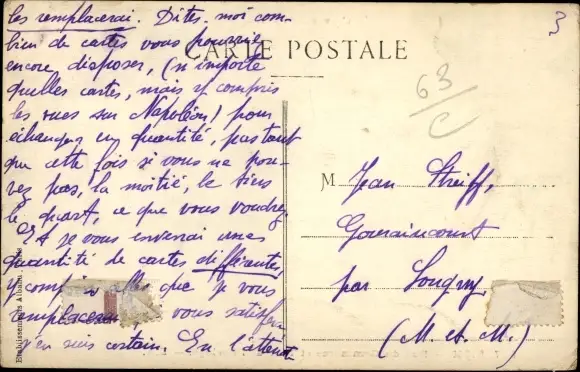 les remplacerai. Dites-moi com-
bien de cartes vous pourriez
encore disposer, (n'importe
quelles cartes, mais y compris
les vues sur Napoléon) pour
échanger en quantité, pas tant
que cette fois si vous ne pou-
vez pas, la moitié, le tiers
le quart, ce que vous voudrez
Et je vous enverrai une
quantité de cartes différentes,
y compris celles que je vous
remplacerai, vous satisfera
j'en suis certain. En l'attente
CARTE POSTALE
63/C
3
M Jean Streiff,
par Longwy
(M. et M.)